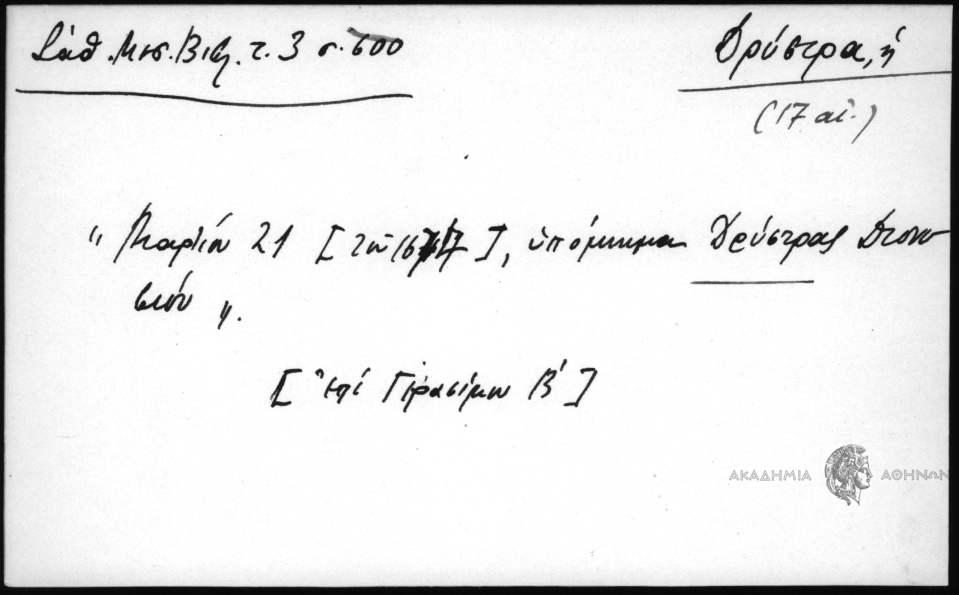 Σάθ. Μεσ. Βιβ. τ. 3 σ. 600
Δρύστρα, ἡ
(17 αἰ.)
“ Μαρτίου 21 [τοῦ 167 ], ὑπόμνημα Δρύστρας Διονυ
σίου „.
[ἐπὶ Γερασίμου Β΄]
ΑΚΑΔΗΜΙΑ ΑΘΗΝΩΝ